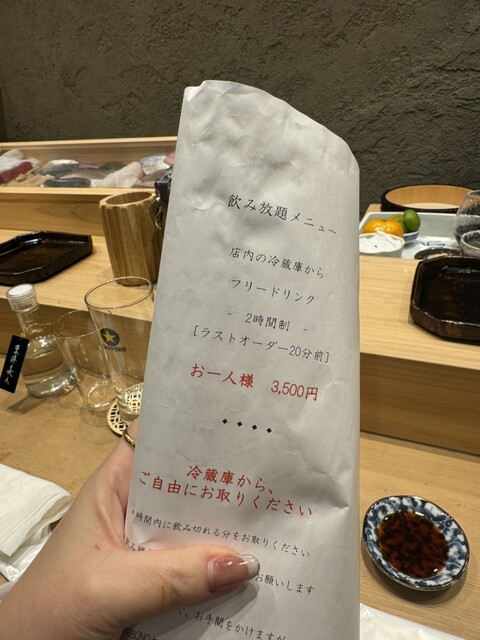 飲み放題メニュー
店内の冷蔵庫から
フリードリンク
- 2時間制 -
[ラストオーダー20分前]
お一人様 3,500円
冷蔵庫から、
ご自由にお取りください
時間内に飲み切れる分をお取りください
お願いします
お手間をかけますが